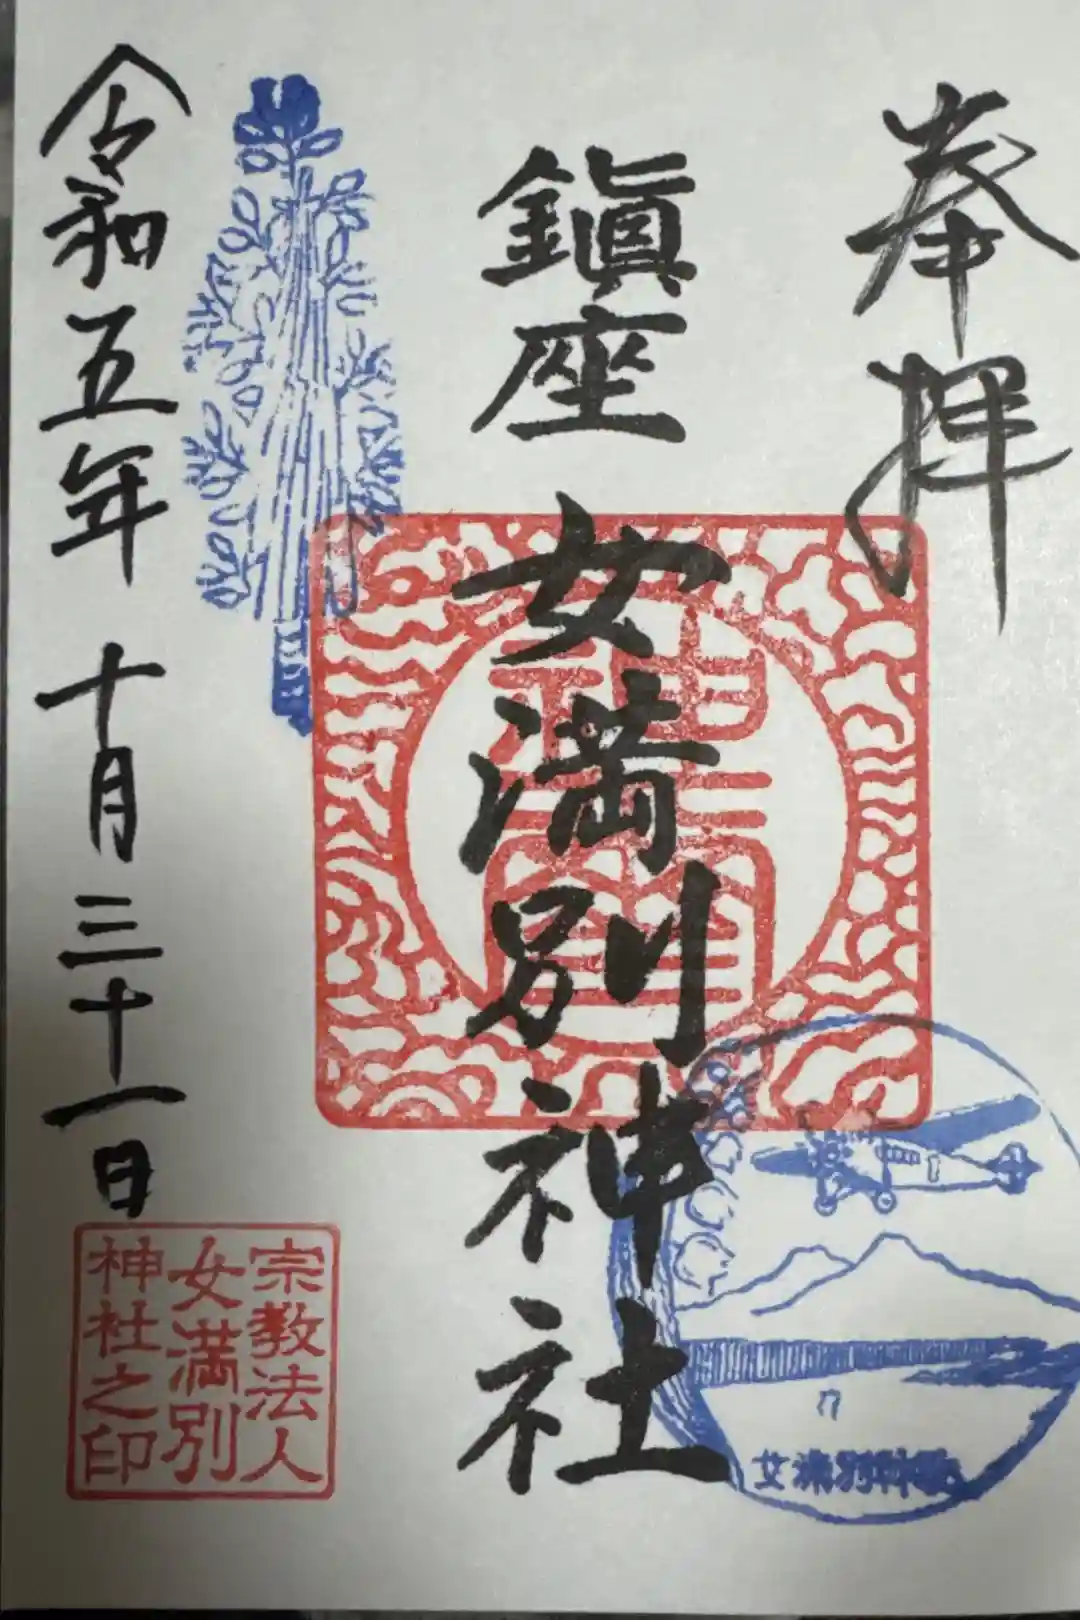 奉拝
鎭座
女満別神社
令和五年十月三十一日
宗教法人
女満別
神社之印
女満別神社